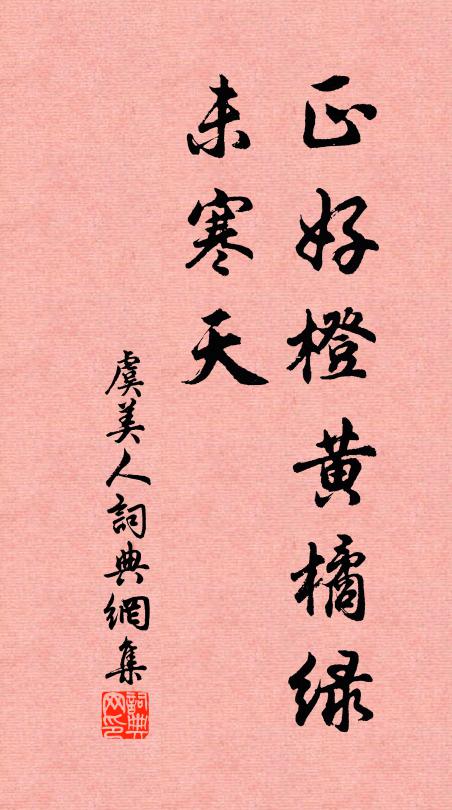 正好橙黄橘緑
未寒天
虞美人詞典網集
詞典網印